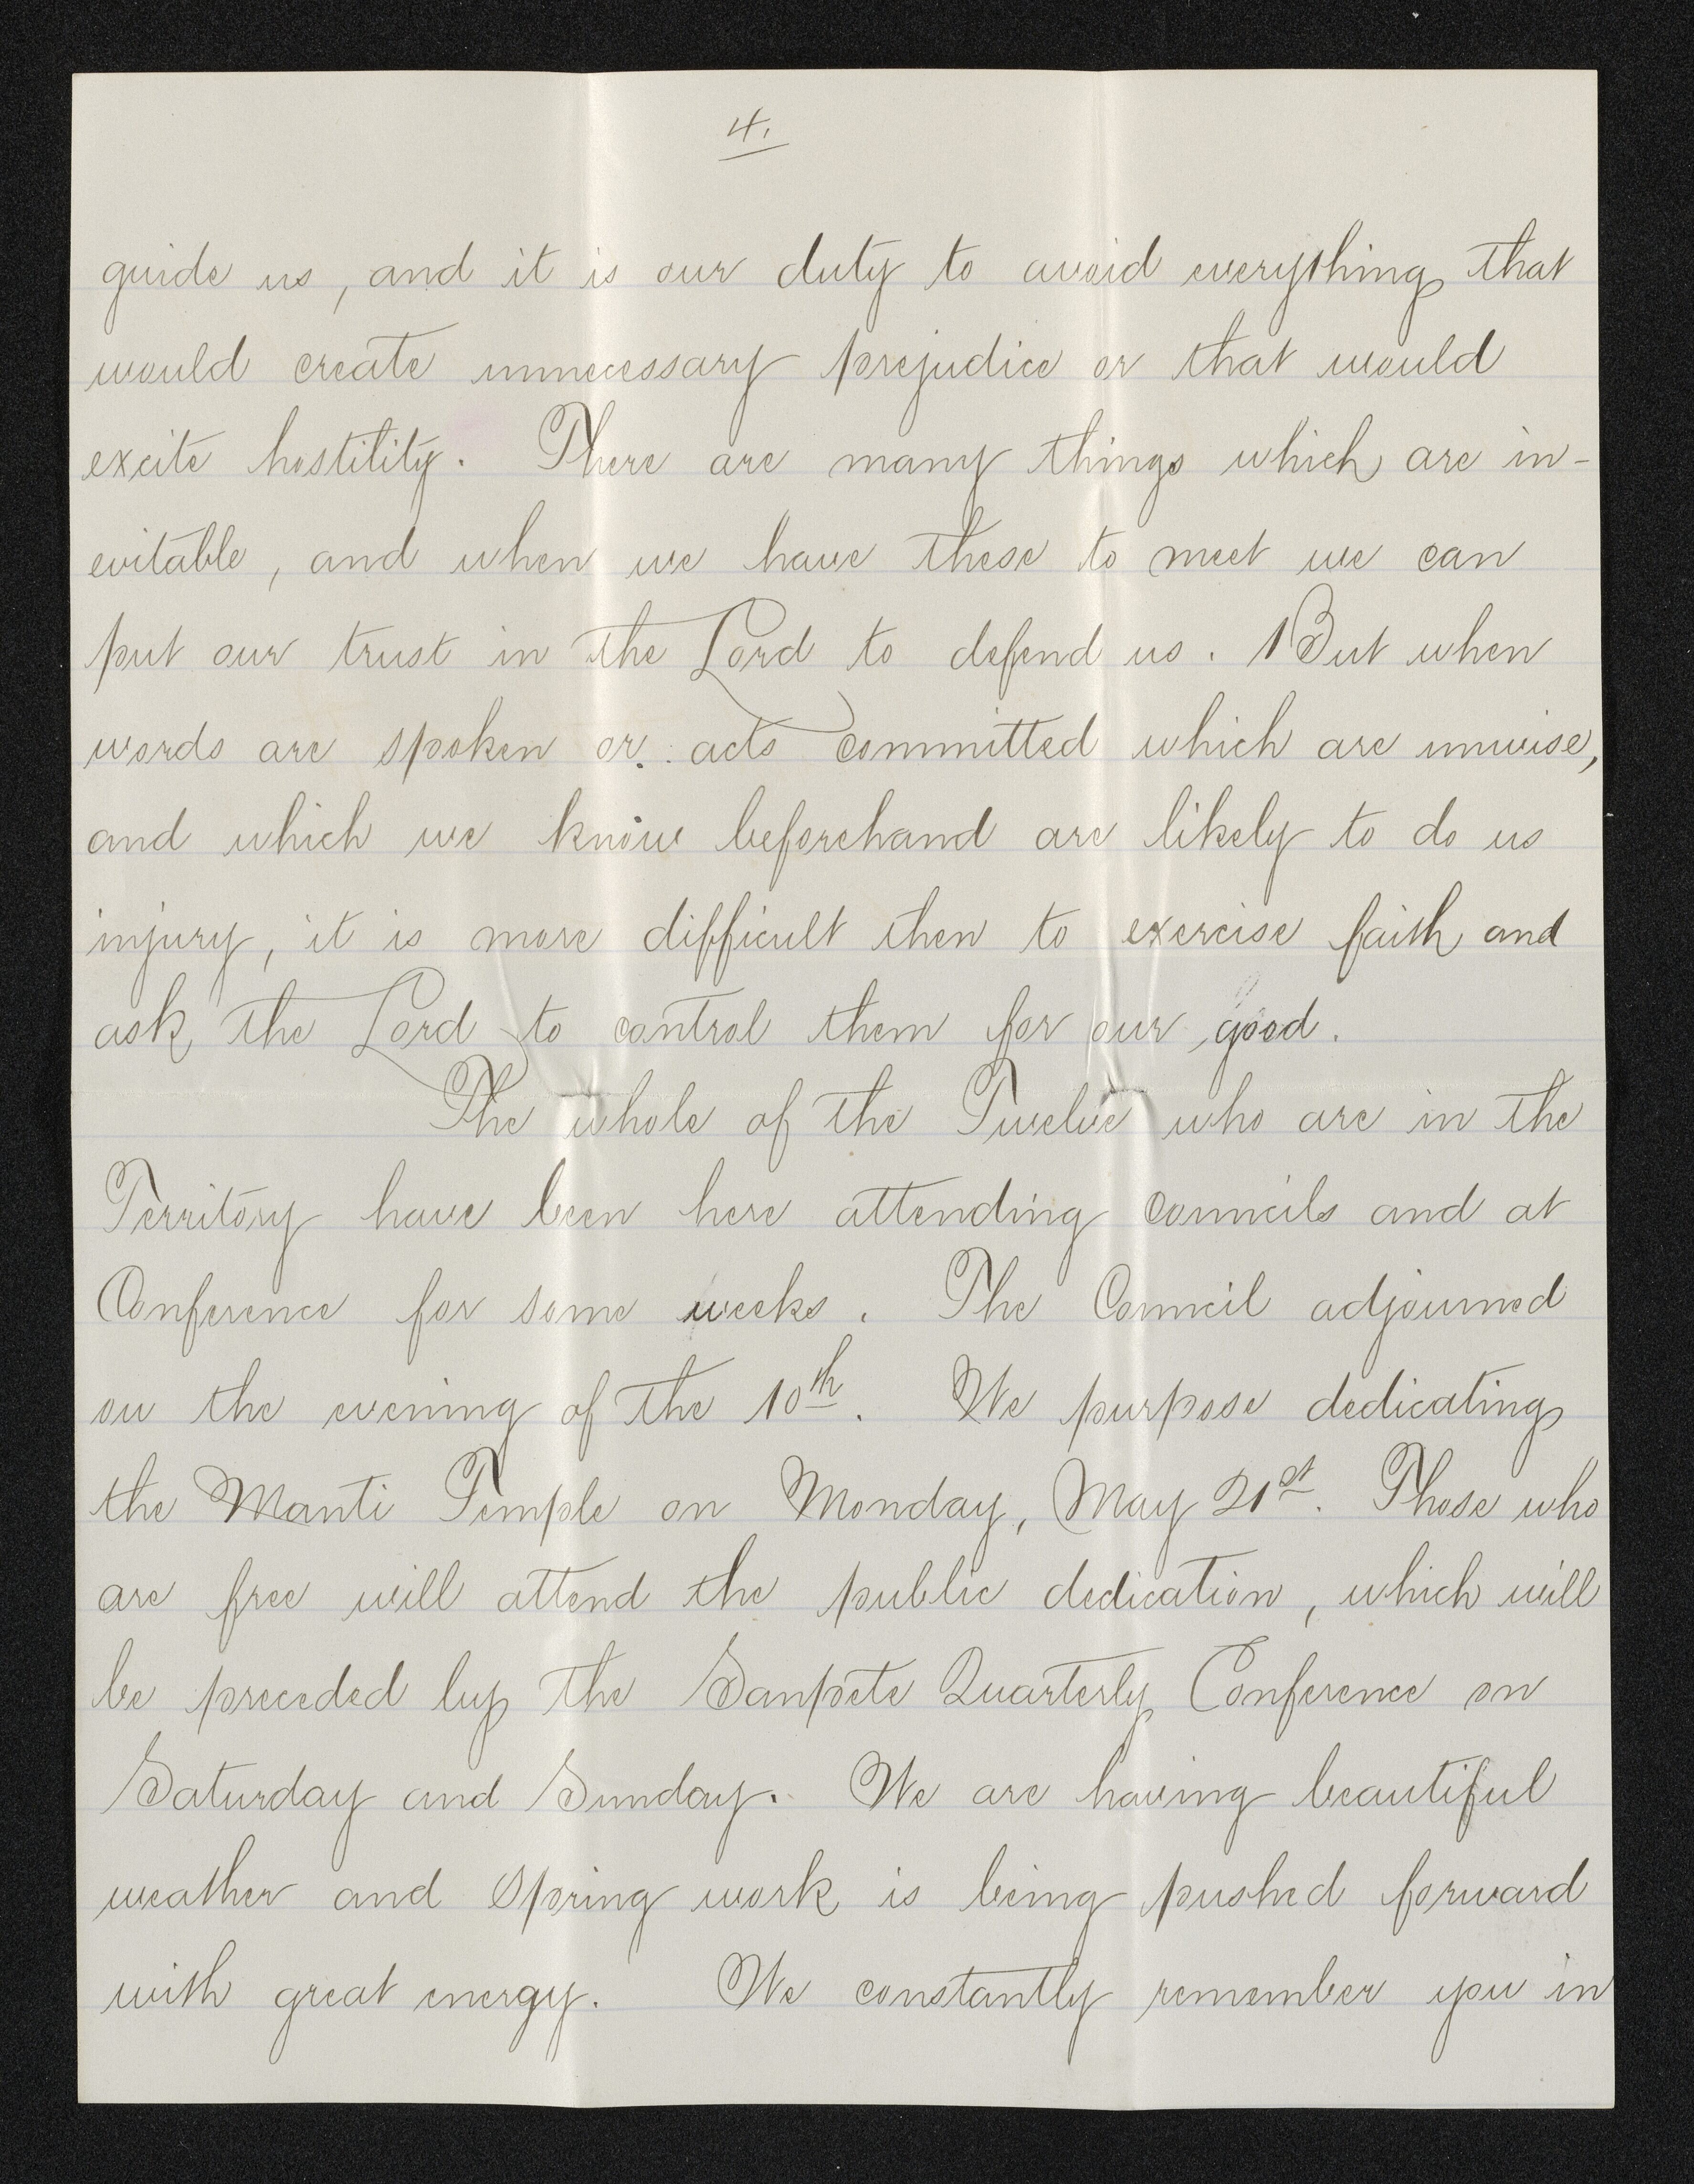 4.
guide us, and it is our duty to avoid everything that
would create unnecessary prejudice or that would
excite hostility. There are many things which are in-
evitable, and when we have these to meet we can
put our trust in the Lord to defend us. But when
words are spoken or acts committed which are unwise,
and which we know beforehand are likely to do us
injury, it is more difficult then to exercise faith and
ask the Lord to control them for our good.
The whole of the Twelve who are in the
Territory have been here attending councils and at
Conference for some weeks. The Council adjourned
on the evening of the 10th. We purpose dedicating
the Manti Temple on Monday, May 21st. Those who
are free will attend the public dedication, which will
be preceded by the Sanpete Quarterly Conference on
Saturday and Sunday. We are having beautiful
weather and Spring work is being pushed forward
with great energy. We constantly remember you in